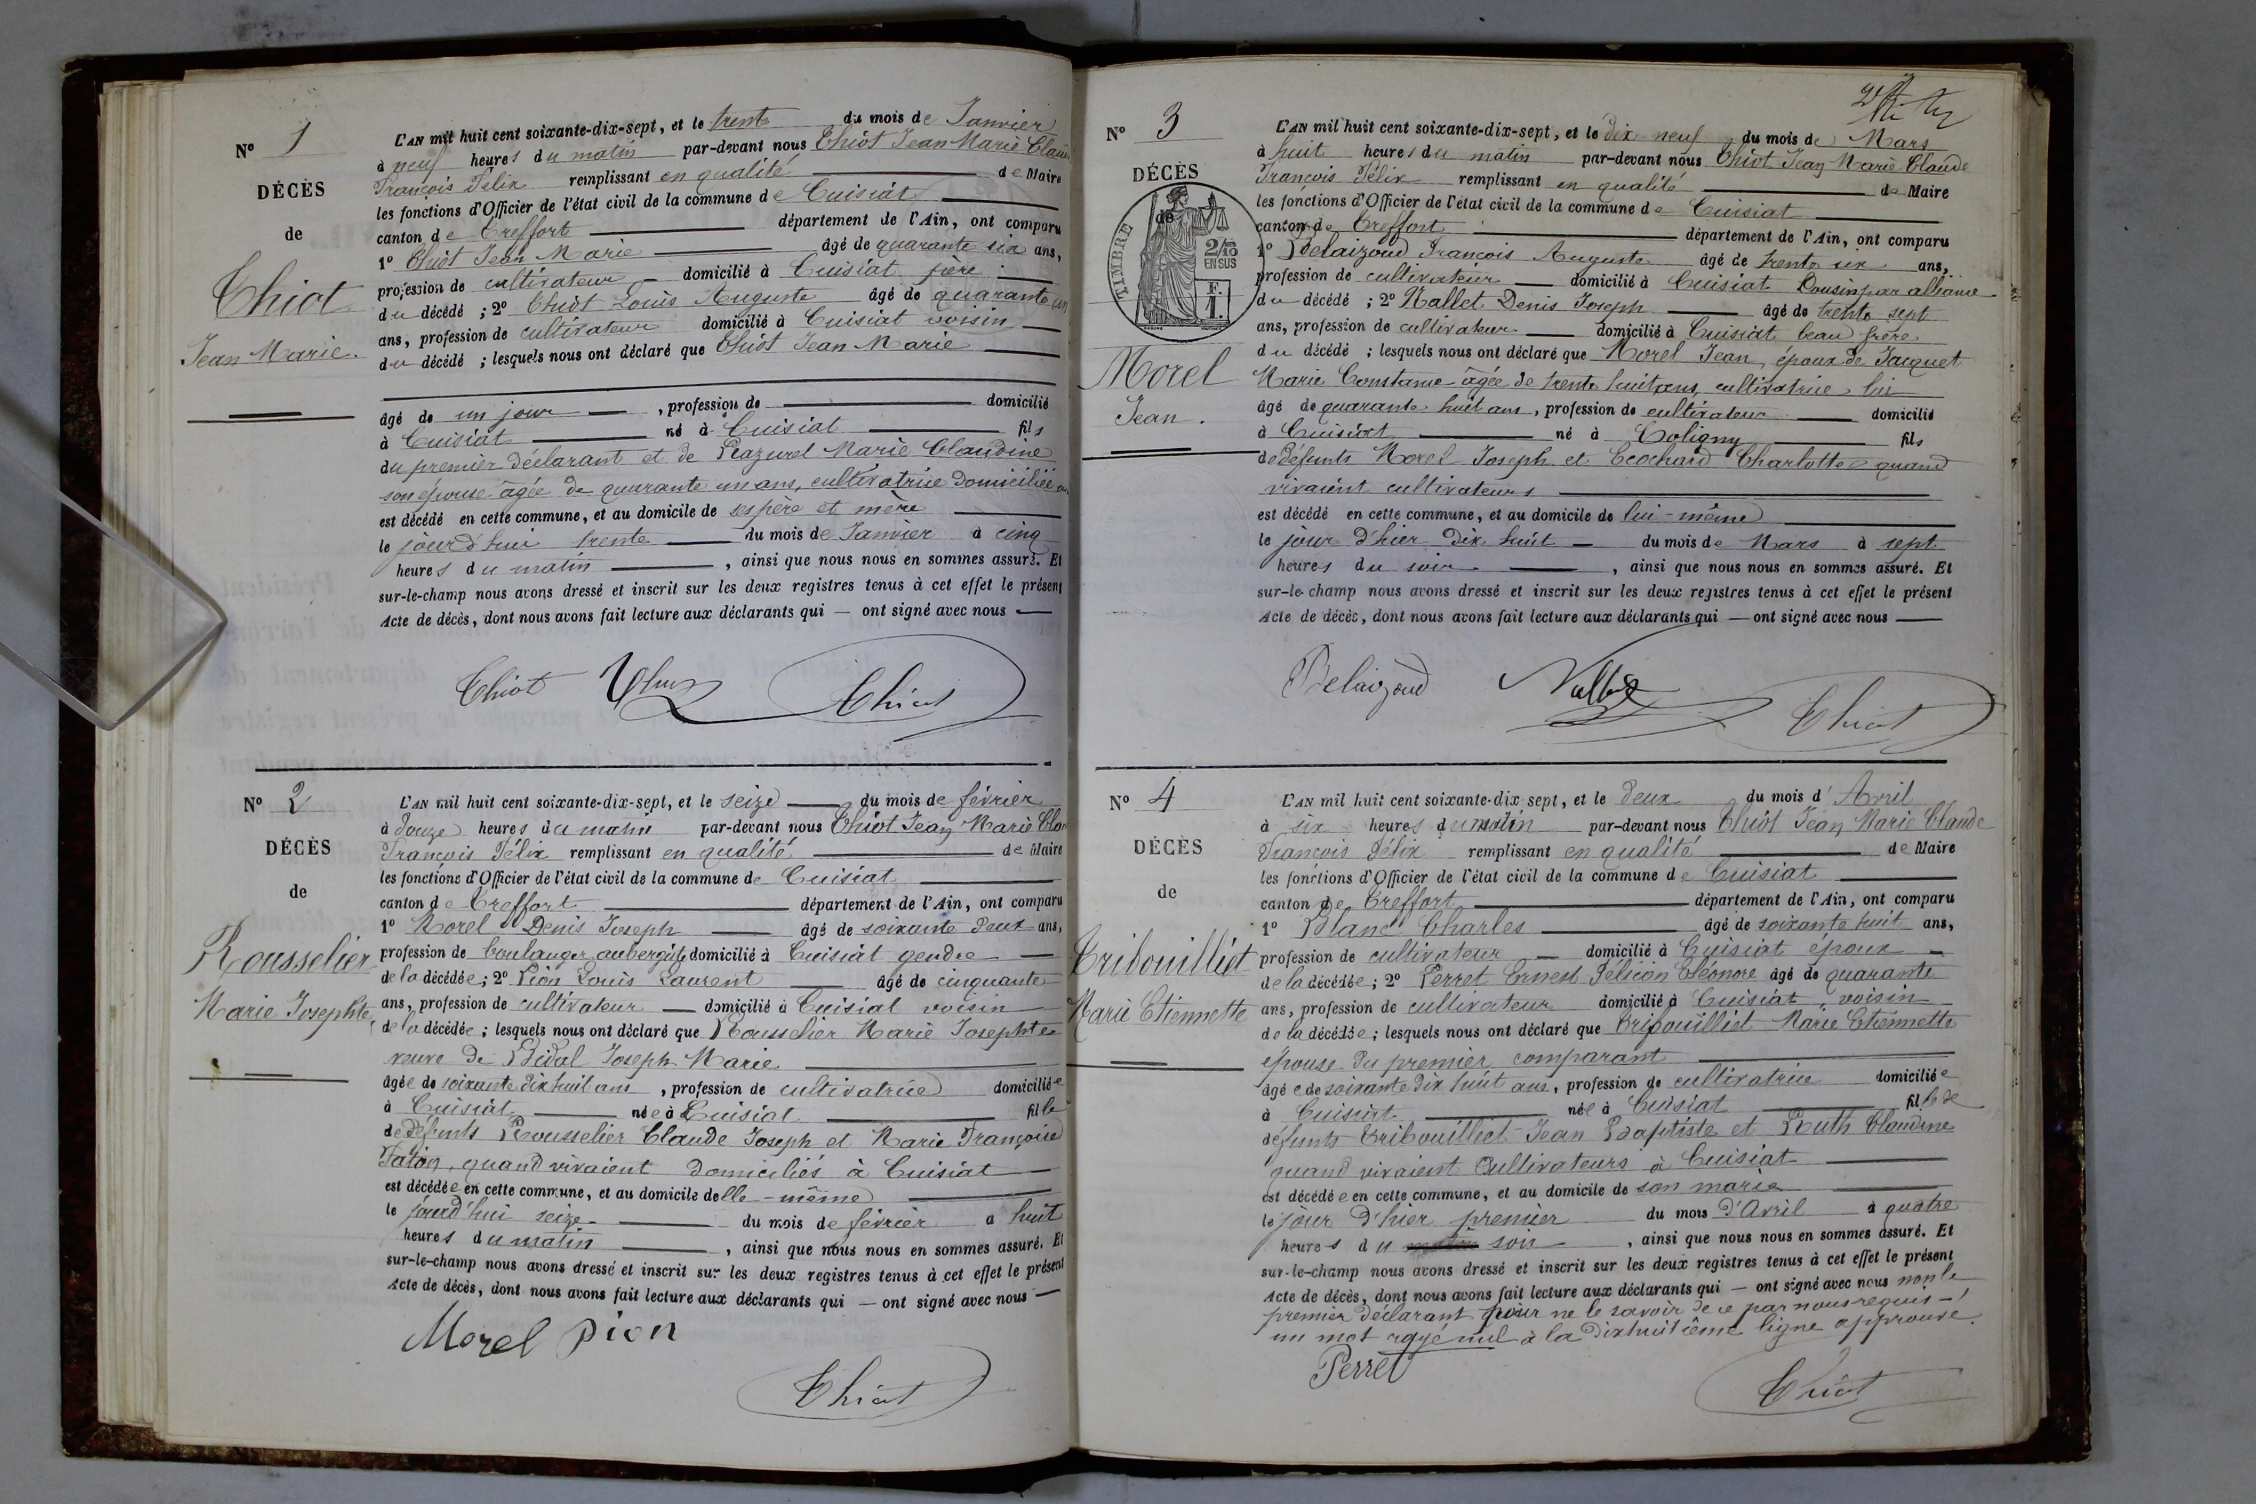 N° 1
DÉCÈS
de
Thiot
Jean Marie.
L'AN mil huit cent soixante-dix-sept, et le trente du mois de Janvier
à neuf heures du matin par-devant nous Thiot Jean Marie Claude
François Félix remplissant en qualité de Maire
les fonctions d'Officier de l'état civil de la commune de Cuisiat
canton de Treffort département de l'Ain, ont comparu
1° Thiot Jean Marie âgé de quarante six ans,
profession de cultivateur domicilié à Cuisiat père
du décédé ; 2° Thiot Louis Auguste âgé de quarante un
ans, profession de cultivateur domicilié à Cuisiat voisin
du décédé ; lesquels nous ont déclaré que Thiot Jean Marie
âgé de un jour , profession de domicilié
à Cuisiat né à Cuisiat fils
du premier déclarant et de Marie Claudine
son épouse âgée de quarante un ans, cultivatrice domiciliée
est décédé en cette commune, et au domicile de ses père et mère
le jourd'hui trente du mois de Janvier à cinq
heures du matin , ainsi que nous nous en sommes assuré. Et
sur-le-champ nous avons dressé et inscrit sur les deux registres tenus à cet effet le présent
Acte de décès, dont nous avons fait lecture aux déclarants qui — ont signé avec nous
Thiot Thiot
N° 2
DÉCÈS
de
Rousselier
Marie Josephte
L'AN mil huit cent soixante-dix-sept, et le seize du mois de février
à douze heures du matin par-devant nous Thiot Jean Marie Cla
François Félix remplissant en qualité de Maire
les fonctions d'Officier de l'état civil de la commune de Cuisiat
canton de Treffort département de l'Ain, ont comparu
1° Morel Denis Joseph âgé de soixante deux ans,
profession de boulanger aubergiste domicilié à Cuisiat gendre
de la décédée ; 2° Pion Louis Laurent âgé de cinquante
ans, profession de cultivateur domicilié à Cuisiat voisin
de la décédée ; lesquels nous ont déclaré que Rousselier Marie Josephte
veuve de Bidal Joseph Marie
âgée de soixante dix huit ans , profession de cultivatrice domiciliée
à Cuisiat née à Cuisiat fille
de défunts Rousselier Claude Joseph et Marie Françoise
quand vivaient domiciliés à Cuisiat
est décédée en cette commune, et au domicile d'elle-même
le jourd'hui seize du mois de février à huit
heures du matin , ainsi que nous nous en sommes assuré. Et
sur-le-champ nous avons dressé et inscrit sur les deux registres tenus à cet effet le présent
Acte de décès, dont nous avons fait lecture aux déclarants qui — ont signé avec nous
Morel Pion
Thiot
N° 3
DÉCÈS
de
TIMBRE
2/10
EN SUS
F.
1.
Morel
Jean.
L'AN mil huit cent soixante-dix-sept, et le dix neuf du mois de Mars
à huit heures du matin par-devant nous Thiot Jean Marie Claude
François Félix remplissant en qualité de Maire
les fonctions d'Officier de l'état civil de la commune de Cuisiat
canton de Treffort département de l'Ain, ont comparu
1° Belaizoud François Auguste âgé de trente six ans,
profession de cultivateur domicilié à Cuisiat Cousin par alliance
du décédé ; 2° Nallet Denis Joseph âgé de trente sept
ans, profession de cultivateur domicilié à Cuisiat beau frère
du décédé ; lesquels nous ont déclaré que Morel Jean, époux de Jacquet
Marie Constance âgée de trente huit ans, cultivatrice, lui
âgé de quarante huit ans, profession de cultivateur domicilié
à Cuisiat né à Coligny fils
de défunts Morel Joseph et Ecochard Charlotte quand
vivaient cultivateurs
est décédé en cette commune, et au domicile de lui-même
le jour d'hier dix huit du mois de Mars à sept
heures du soir , ainsi que nous nous en sommes assuré. Et
sur-le-champ nous avons dressé et inscrit sur les deux registres tenus à cet effet le présent
Acte de décès, dont nous avons fait lecture aux déclarants qui — ont signé avec nous
Belaizoud Nallet Thiot
N° 4
DÉCÈS
de
Tribouilliet
Marie Etiennette
L'AN mil huit cent soixante-dix sept, et le deux du mois d'Avril
à six heures du matin par-devant nous Thiot Jean Marie Claude
François Félix remplissant en qualité de Maire
les fonctions d'Officier de l'état civil de la commune de Cuisiat
canton de Treffort département de l'Ain, ont comparu
1° Blanc Charles âgé de soixante huit ans,
profession de cultivateur domicilié à Cuisiat époux
de la décédée ; 2° Perret Ernest Félicien Eléonore âgé de quarante
ans, profession de cultivateur domicilié à Cuisiat, voisin
de la décédée ; lesquels nous ont déclaré que Tribouilliet Marie Etiennette
épouse du premier comparant
âgée de soixante dix huit ans, profession de cultivatrice domiciliée
à Cuisiat née à Cuisiat fille de
défunts Tribouilliet Jean Baptiste et Buth Claudine
quand vivaient Cultivateurs à Cuisiat
est décédée en cette commune, et au domicile de son marie
le jour d'hier premier du mois d'Avril à quatre
heures du matin soir , ainsi que nous nous en sommes assuré. Et
sur-le-champ nous avons dressé et inscrit sur les deux registres tenus à cet effet le présent
Acte de décès, dont nous avons fait lecture aux déclarants qui — ont signé avec nous non le
premier déclarant pour ne le savoir de ce par nous requis
un mot rayé nul à la dixhuitième ligne approuvé.
Perret
Thiot